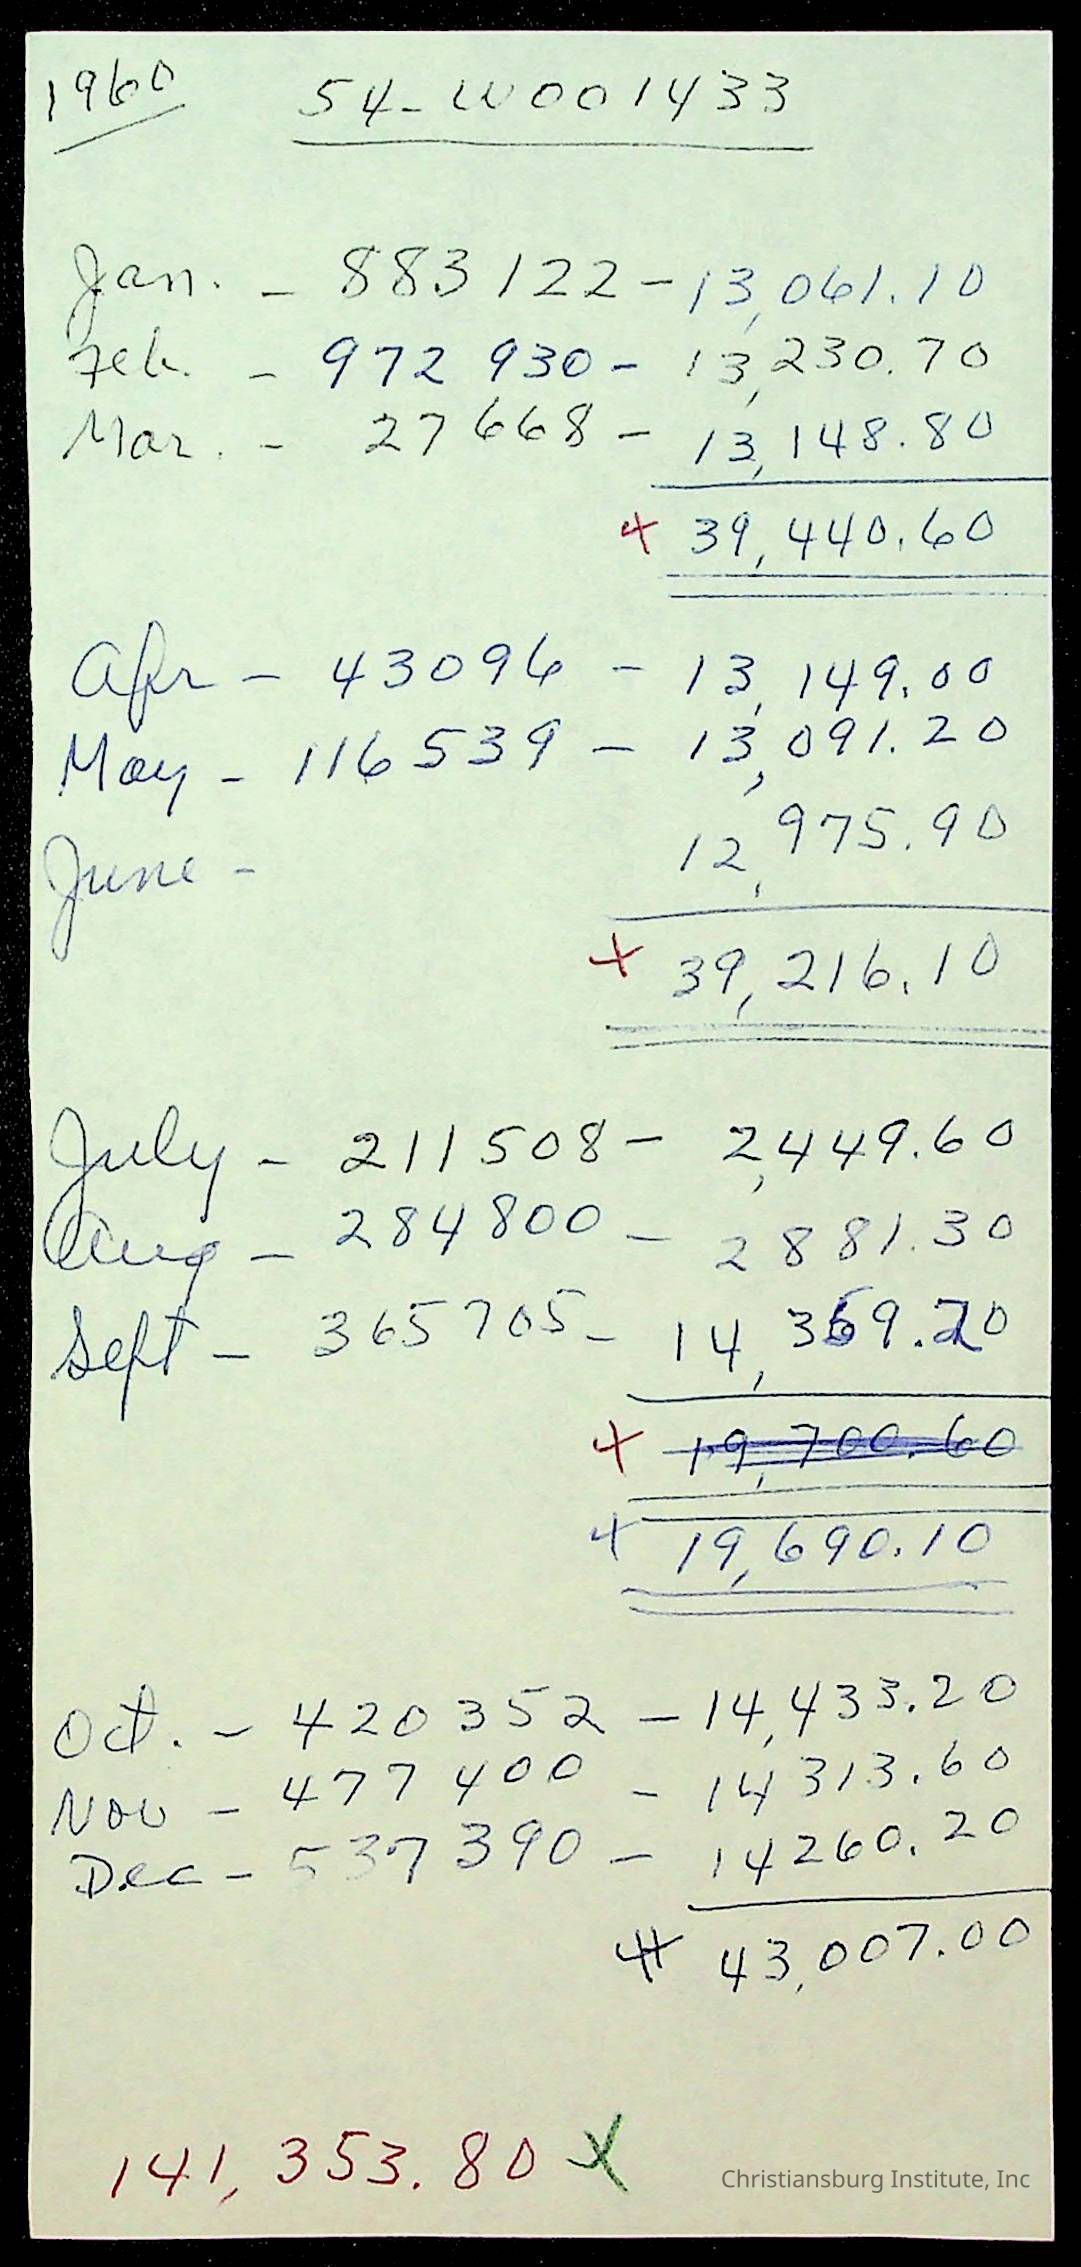 1960 54-W001433
Jan. - 883122 - 13,061.10
Feb. - 972930 - 13,230.70
Mar. - 27668 - 13,148.80
x 39,440.60
Apr - 43096 - 13,149.00
May - 116539 - 13,091.20
June - 12,975.90
x 39,216.10
July - 211508 - 2,449.60
Aug - 284800 - 2881.30
Sept - 365705 - 14,359.20
x 19,700.60
x 19,690.10
Oct. - 420352 - 14,433.20
Nov - 477400 - 14313.60
Dec - 537390 - 14260.20
43,007.00
141,353.80 x
Christiansburg Institute, Inc